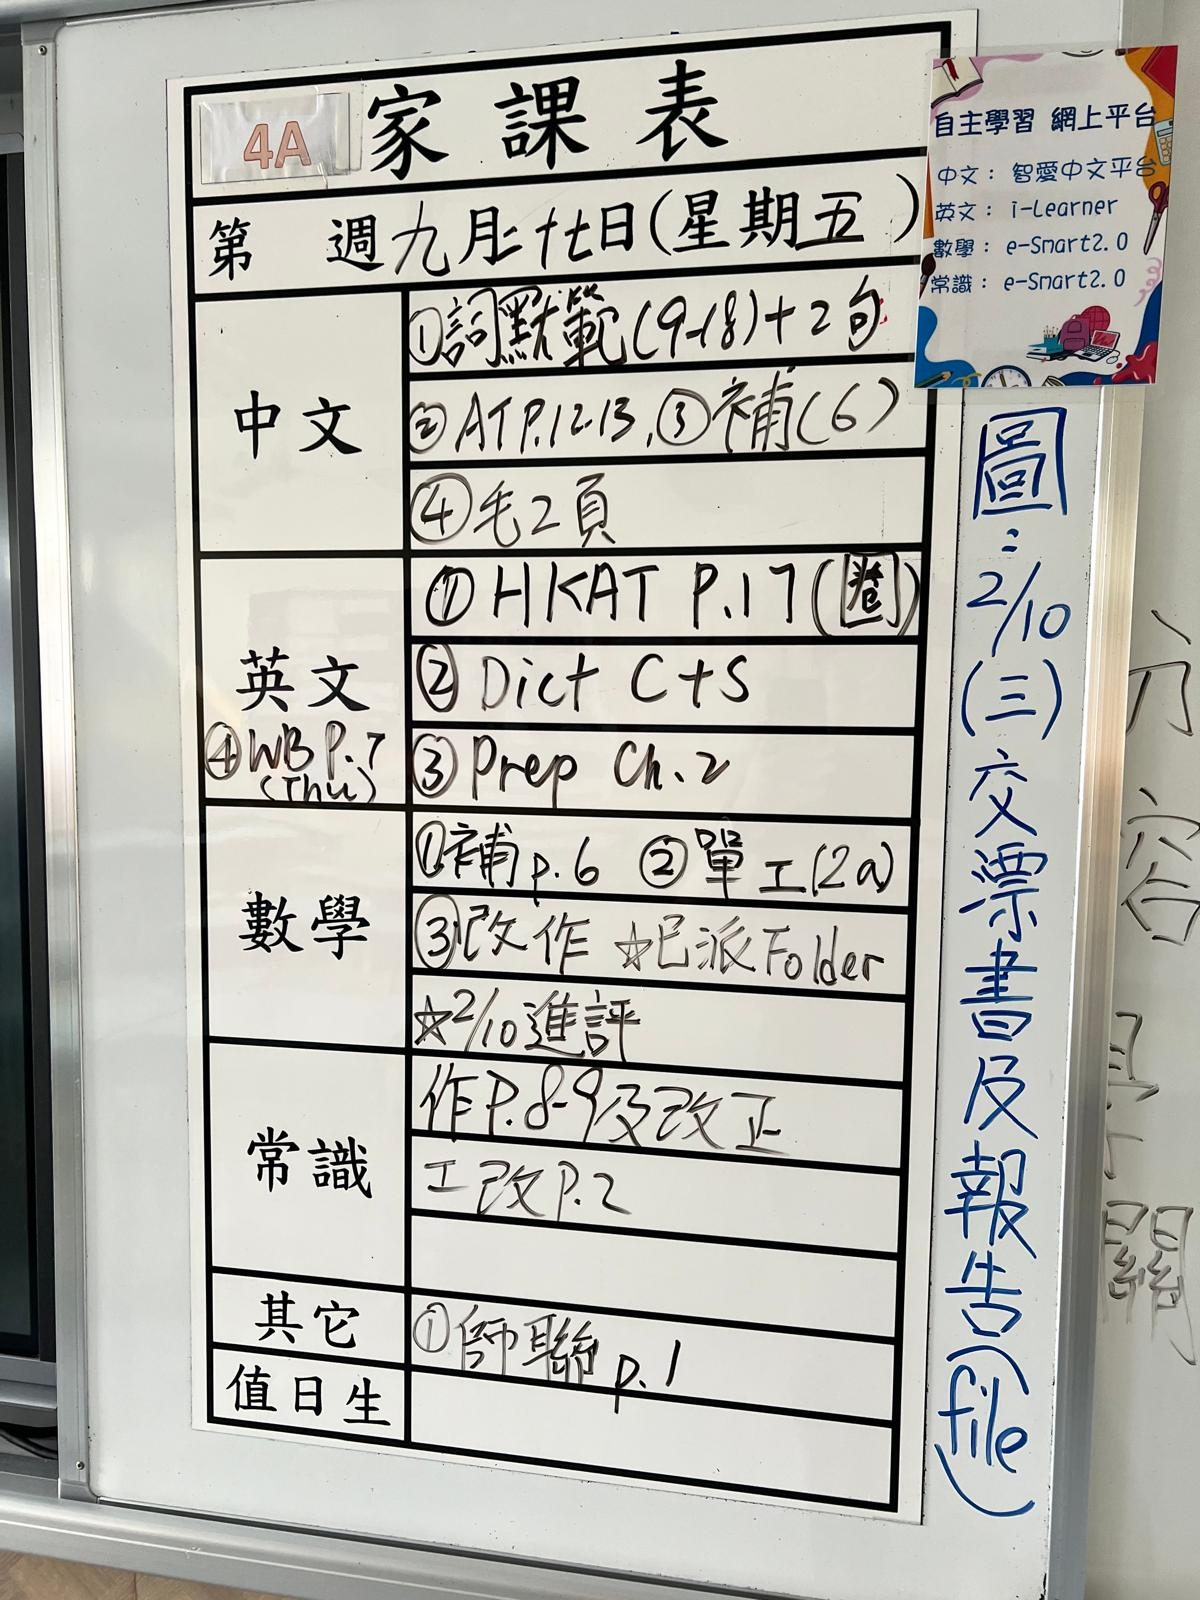 4A 家課表
第 週九月二十七日(星期五)
中文
①詞默範(9-18)+2句
②ATP.12-13、③補(6)
④毛2頁
英文
④WB P.7
(Thu)
① HKAT P.17(圈)
② Dict C+S
③ Prep Ch.2
數學
①補p.6 ②單工(2a)
③改作 ☆已派Folder
☆2/10進評
常識
作P.8-9及改正
工改P.2
其它
①師聯p.1
值日生
自主學習 網上平台
中文： 智愛中文平台
英文： i-Learner
數學： e-Smart2.0
常識： e-Smart2.0
圖：2/10(三)交漂書及報告(file)